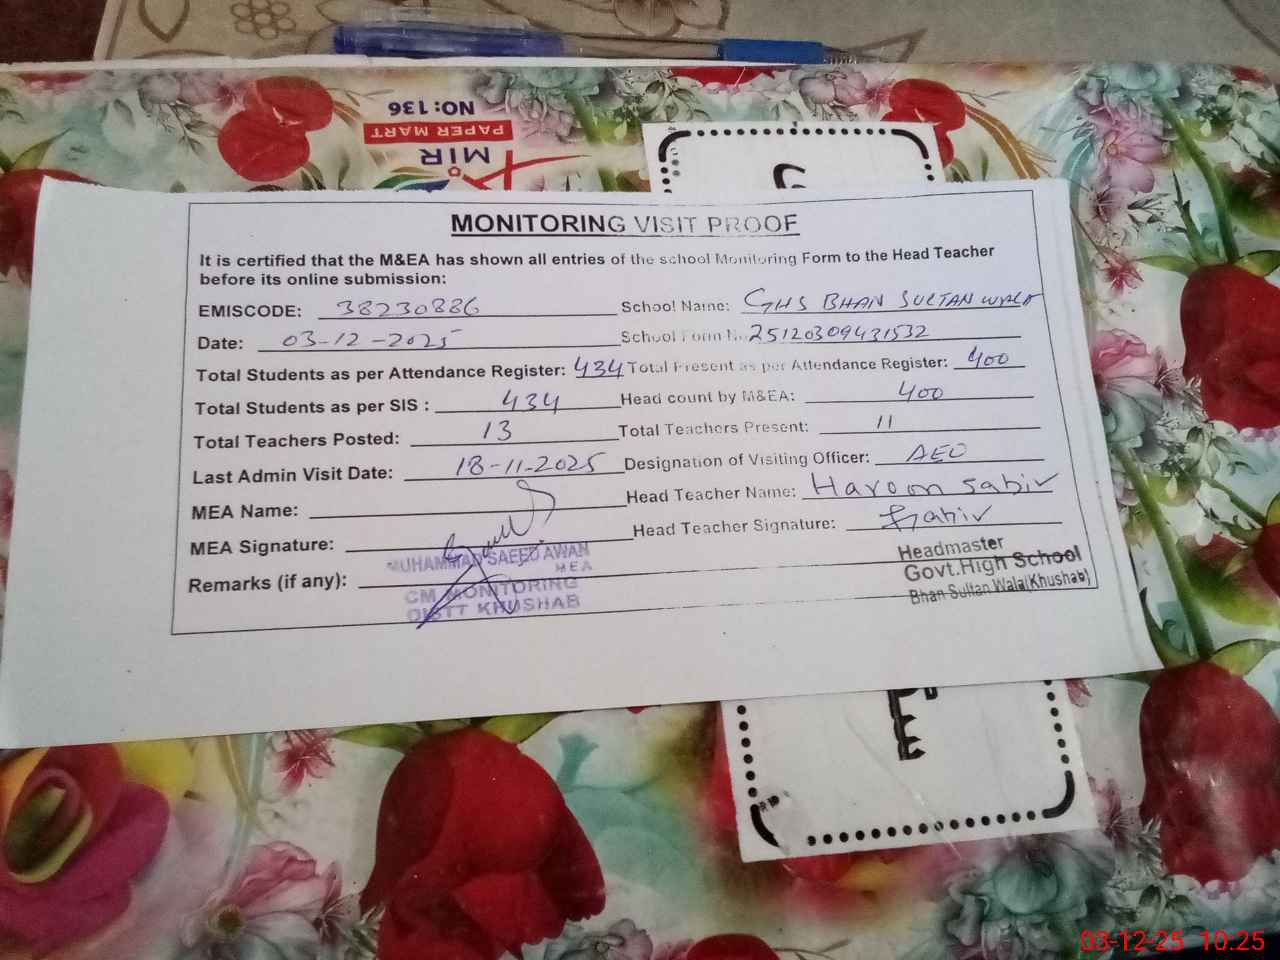 NO:136
PAPER MART
MiR
MONITORING VISIT PROOF
It is certified that the M&EA has shown all entries of the school Monitoring Form to the Head Teacher
before its online submission:
EMISCODE: 38230886 School Name: GHS BHAN SULTAN WALA
Date: 03-12-2025 School Form No. 25120309431532
Total Students as per Attendance Register: 434 Total Present as per Attendance Register: 400
Total Students as per SIS : 434 Head count by M&EA: 400
Total Teachers Posted: 13 Total Teachers Present: 11
Last Admin Visit Date: 18-11-2025 Designation of Visiting Officer: AEO
MEA Name: Head Teacher Name: Haroon Sabir
MEA Signature: Head Teacher Signature: Sabir
MUHAMMAD SAEED AWAN
MEA
CM MONITORING
DISTT KHUSHAB
Remarks (if any):
Headmaster
Govt.High School
Bhan Sultan Wala(Khushab)
PE
03-12-25 10:25